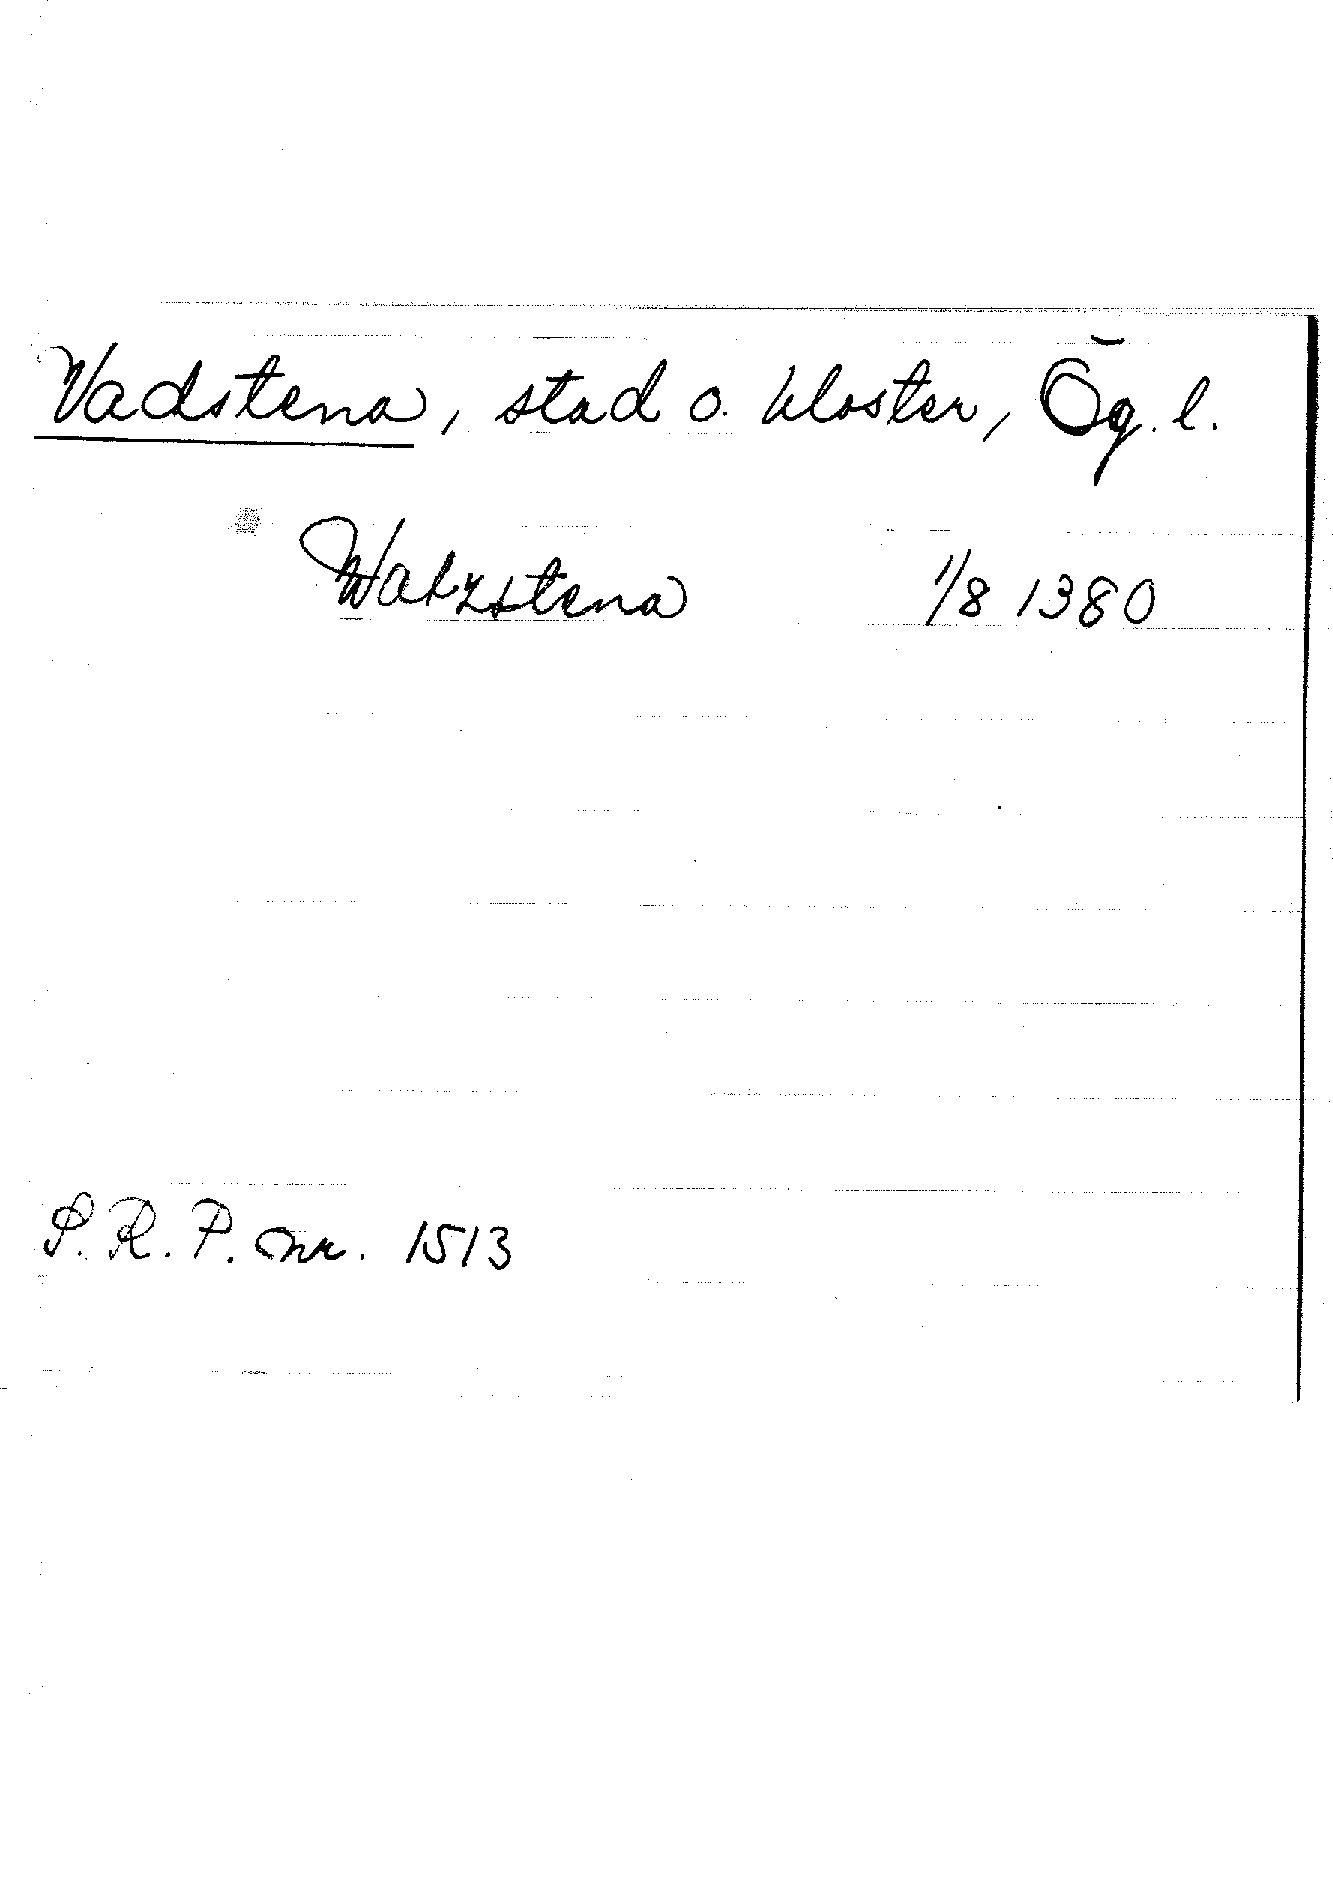 Vadstena, stad o. kloster, Ög. l.
Watzstena 1/8 1380
S. R. P. nr. 1513